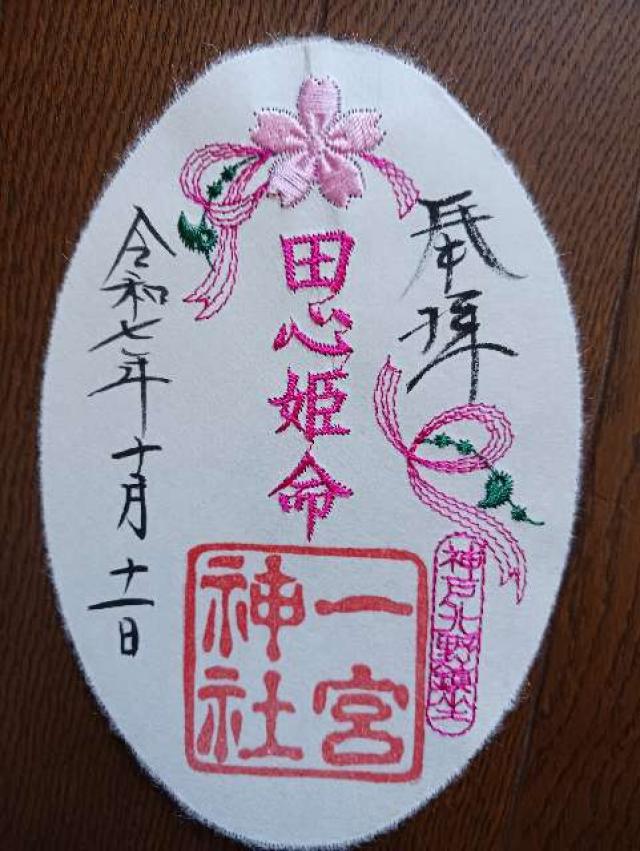 奉拝
田心姫命
神戸北野鎮座
一宮
神社
令和七年十月十一日